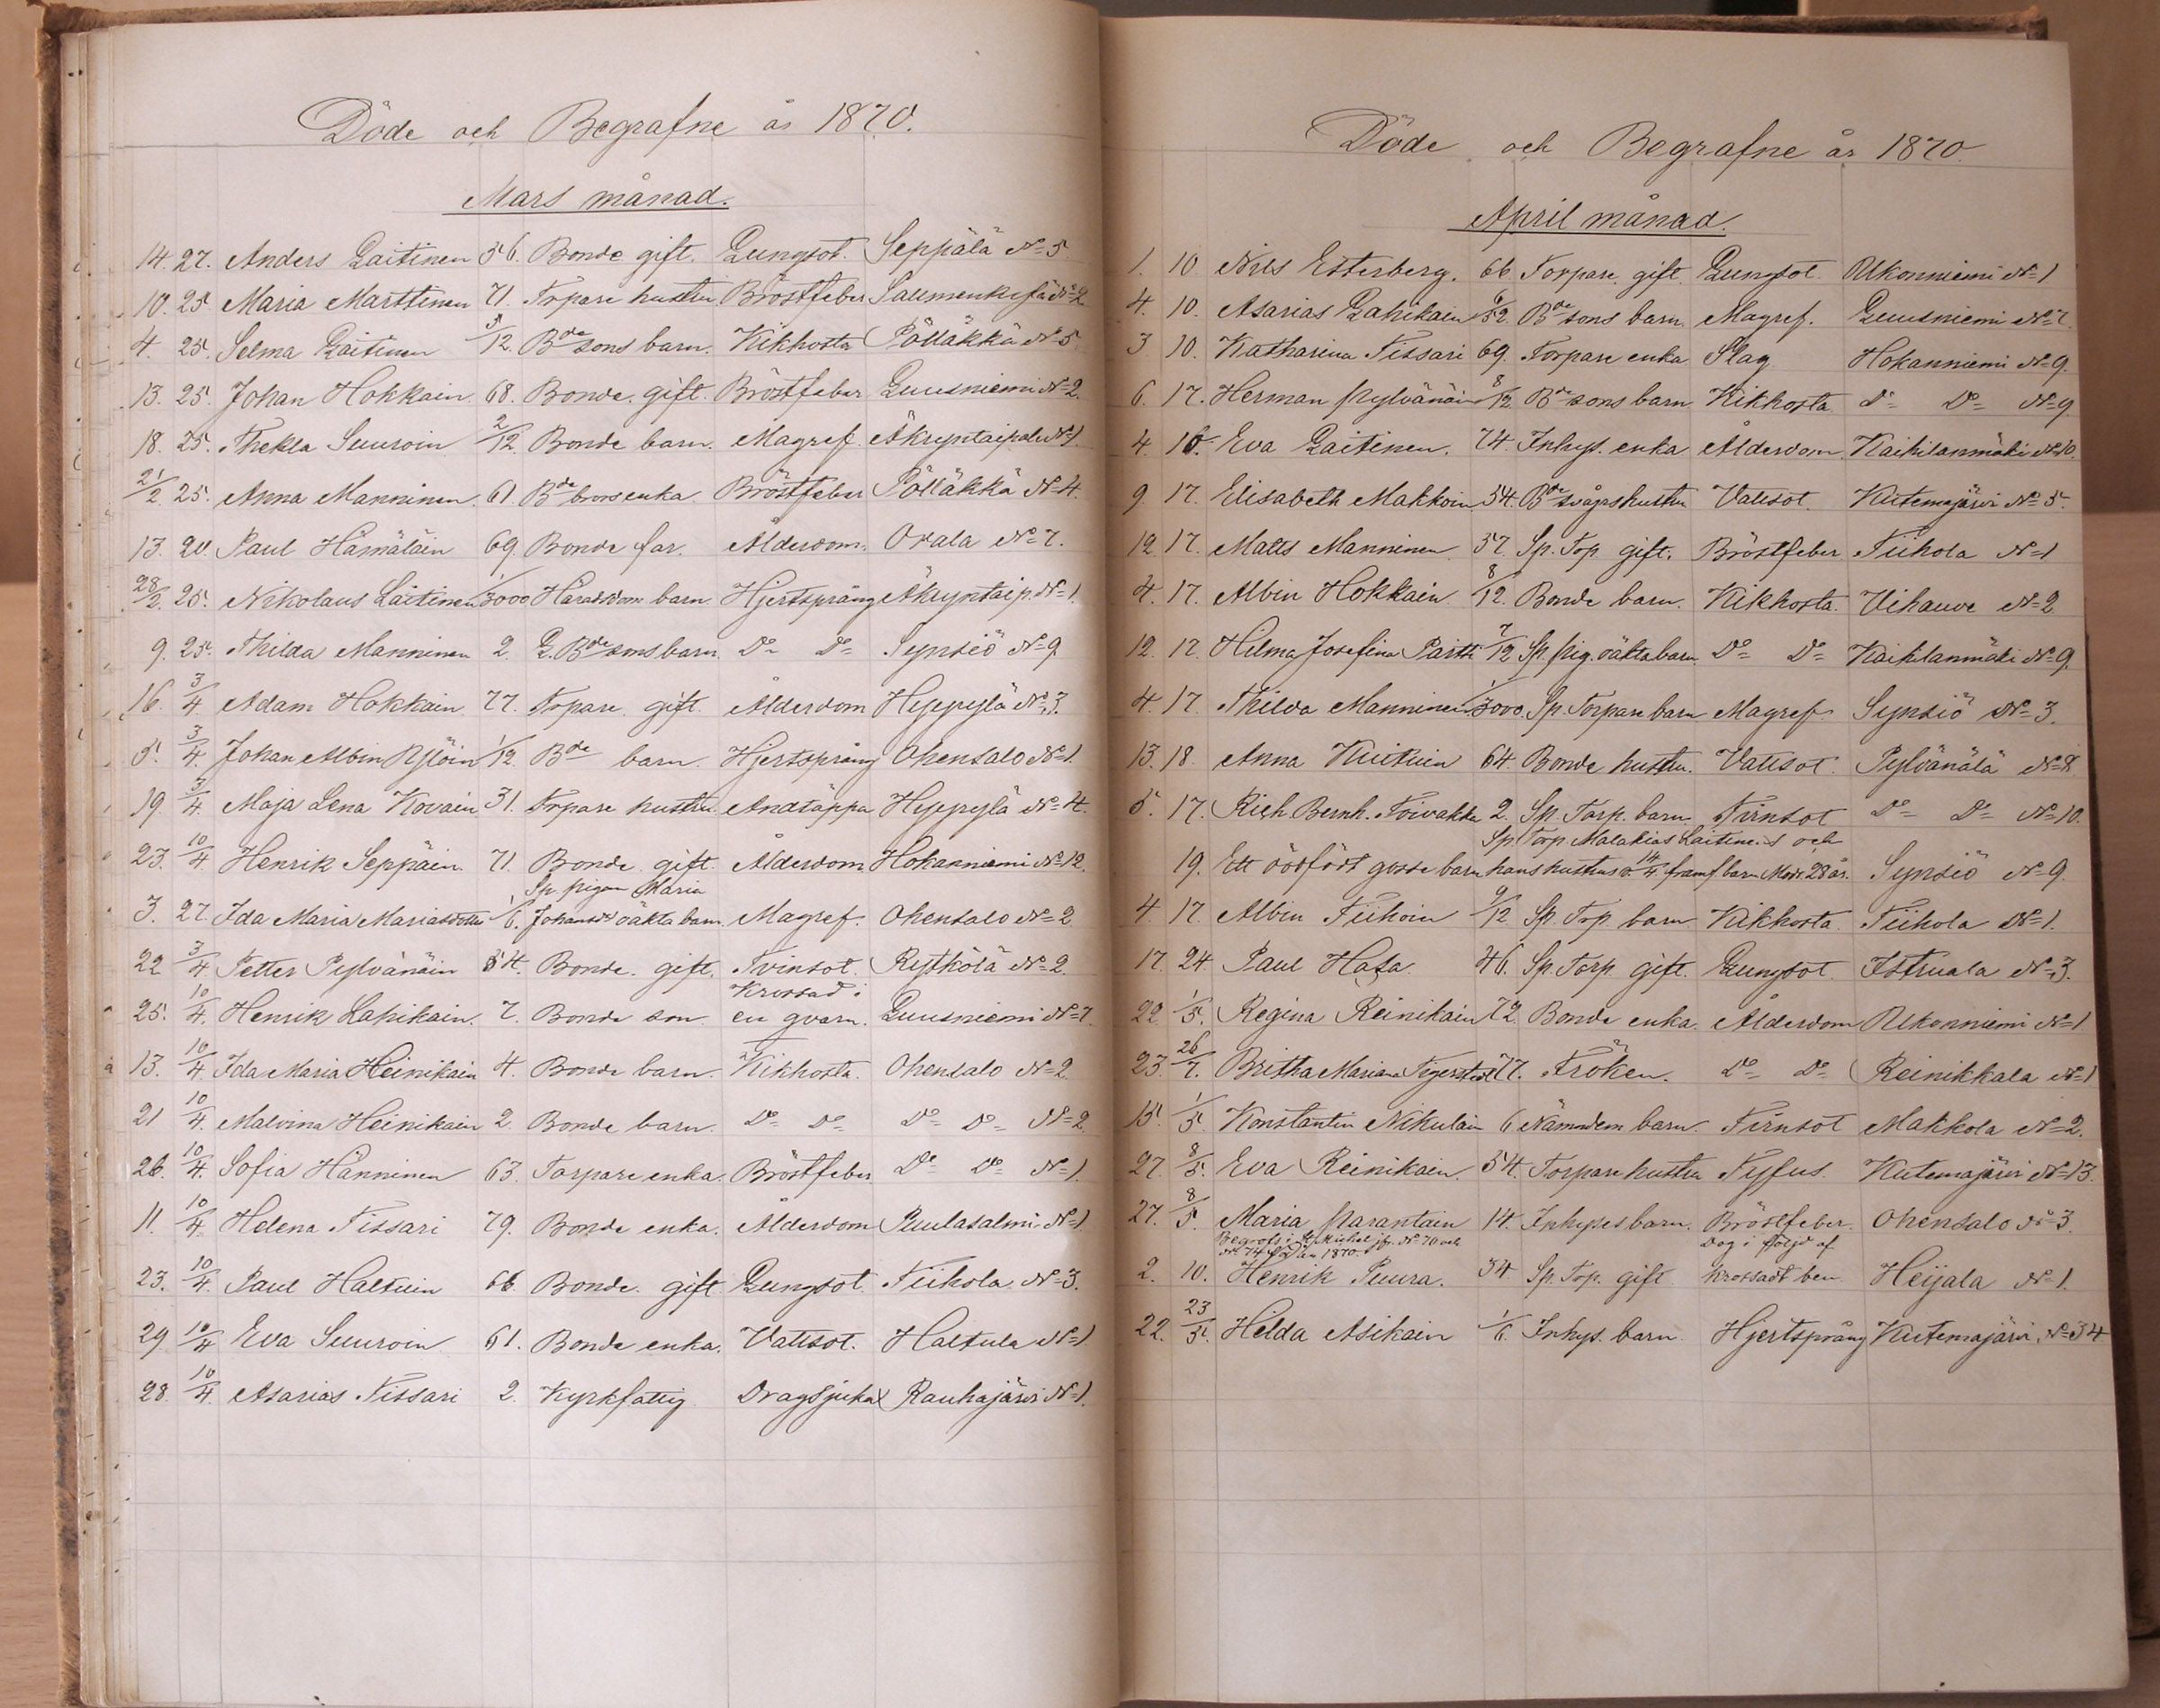 Döde och Begrafne år 1870.
Mars månad.
14. 27. Anders Laitinen 56. Bonde gift. Lungsot. Seppälä No 5
10. 25 Maria Marttinen 71. Torpare hustru Bröstfeber No 2
4. 25. Selma Laitinen 5/12. Bde sons barn. Kikhosta Pölläkkä No 5
13. 25. Johan Hokkain 68. Bonde. gift. Bröstfeber Luusniemi No 2.
18. 25. Thekla Suuroin 2/12 Bonde barn. Magref. Äkryntaipale No 1.
21/2 25. Anna Manninen 61. Bde brors enka Bröstfeber Pölläkkä No 4.
13. 20. Paul Hämäläin 69 Bonde far. Ålderdom. Orala No 7.
28/2. 25. Nikolaus Laitinen 1/3000 Häradsdom barn Hjertsprång Äkryntaip. No 1.
9. 25. Thilda Manninen 2. L. Bde sons barn Do Do Synsiö No 9
16. 3/4 Adam Hokkain 77. Torpare gift. Ålderdom Hyppylä No 3.
5. 3/4. Johan Albin Ylöin 1/12 Bde barn. Hjertsprång Ohensalo No 1.
19. 3/4. Maja Lena Kovain 31. Torpare hustru Andtäppa Hyppylä No 4.
23. 10/4 Henrik Seppäin. 71. Bonde gift. Ålderdom Hokanniemi No 12.
Sp. pigan Maria
3. 27. Ida Maria Mariasdotter 1/6. Johansdr oäkta barn. Magref. Ohensalo No 2
22 3/4 Petter Pylvänäin 54. Bonde. gift. Tvinsot. Rytkölä No 2.
Krossad i
25. 10/4. Henrik Lahikain. 7. Bonde son en qvarn. Luusniemi No 7.
13. 10/4. Ida Maria Heinikain 4. Bonde barn. Kikhosta. Ohensalo No 2.
21 10/4. Malvina Heinikain 2. Bonde barn. Do Do Do Do No 2.
26. 10/4. Sofia Hänninen 63. Torpare enka. Bröstfeber Do Do No 1.
11. 10/4. Helena Tissari 79. Bonde enka. Ålderdom Puulasalmi No 1
23. 10/4. Paul Haltuin 66. Bonde. gift Lungsot. Tiihola No 3.
29 10/4 Eva Suuroin 61. Bonde enka. Vattsot. Haltula No 1
28 10/4. Asarias Tissari 2. Kyrkfattig Dragsjuka Rauhajärvi No 1.
Döde och Begrafne år 1870.
April månad.
1. 10 Nils Esterberg. 66 Torpare. gift. Lungsot. Ukonniemi No 1
4. 10. Asarias Lahikain 6/52. Bde sons barn. Magref. Luusniemi No 7.
3 10. Katharina Tissari 69. Torpare enka Slag Hokanniemi No 9.
6. 17. Herman Pylvänäin 8/12 Bde sons barn Kikhosta Do Do No 9
4. 16. Eva Laitinen. 74. Inhys. enka Ålderdom. Kaihilanmäki No 10.
9. 17. Elisabeth Makkoin 54. Bde svågers hustru Vattsot. Kutemajärvi No 5.
12 17. Matts Manninen 37. Sp. Torp gift. Bröstfeber Tiihola No 1
4. 17. Albin Hokkain 8/12. Bonde barn. Kikhosta. Vihauve No 2
12. 17. Hilma Josefina Partti 7/12 Sp. pig. oäkta barn Do Do Kaihilanmäki No 9.
4. 17. Thilda Manninen 1/3000. Sp. Torpare barn Magref Synsiö No 3.
13. 18. Anna Kuitiin 64. Bonde hustru. Vattsot. Pylvänälä No 8
5. 17. Rich Bernh. Toivakka 2. Sp. Torp. barn. Tvinsot Do Do No 10.
Sp. Torp Malakias Laitinens och
19. Ett dödfödt gosse barn hans hustrus d. 14/4 framf. barn Modr 28 år. Synsiö No 9.
4. 17. Albin Tiihoin 9/12 Sp. Torp. barn Kikhosta. Tiihola No 1.
17. 24 Paul Hasa. 46. Sp. Torp. gift. Lungsot. Istruala No 3.
22 1/5. Regina Reinikain 72 Bonde enka. Ålderdom Ukonniemi No 1
23. 26/7. Britha Mariana Tigerstedt 77. Fröken. Do Do Reinikkala No 1
15. 1/5. Konstantin Nikulain 6 Nämndem barn. Tvinsot Makkola No 2.
27. 8/5. Eva Reinikain. 54. Torpare hustru Tyfus. Kutemajärvi No 13.
27. 8/5. Maria Parantain 14. Inhyses barn. Bröstfeber. Ohensalo No 3
Begrofs i St Michel jfr. No 70 och Dog i följd af
No 74 för år 1870.
2. 10. Henrik Puura. 34 Sp. Torp. gift krossadt ben Heijala No 1.
22. 23/5. Helda Asikain 1/6. Inhys. barn Hjertsprång Kutemajärvi No 34